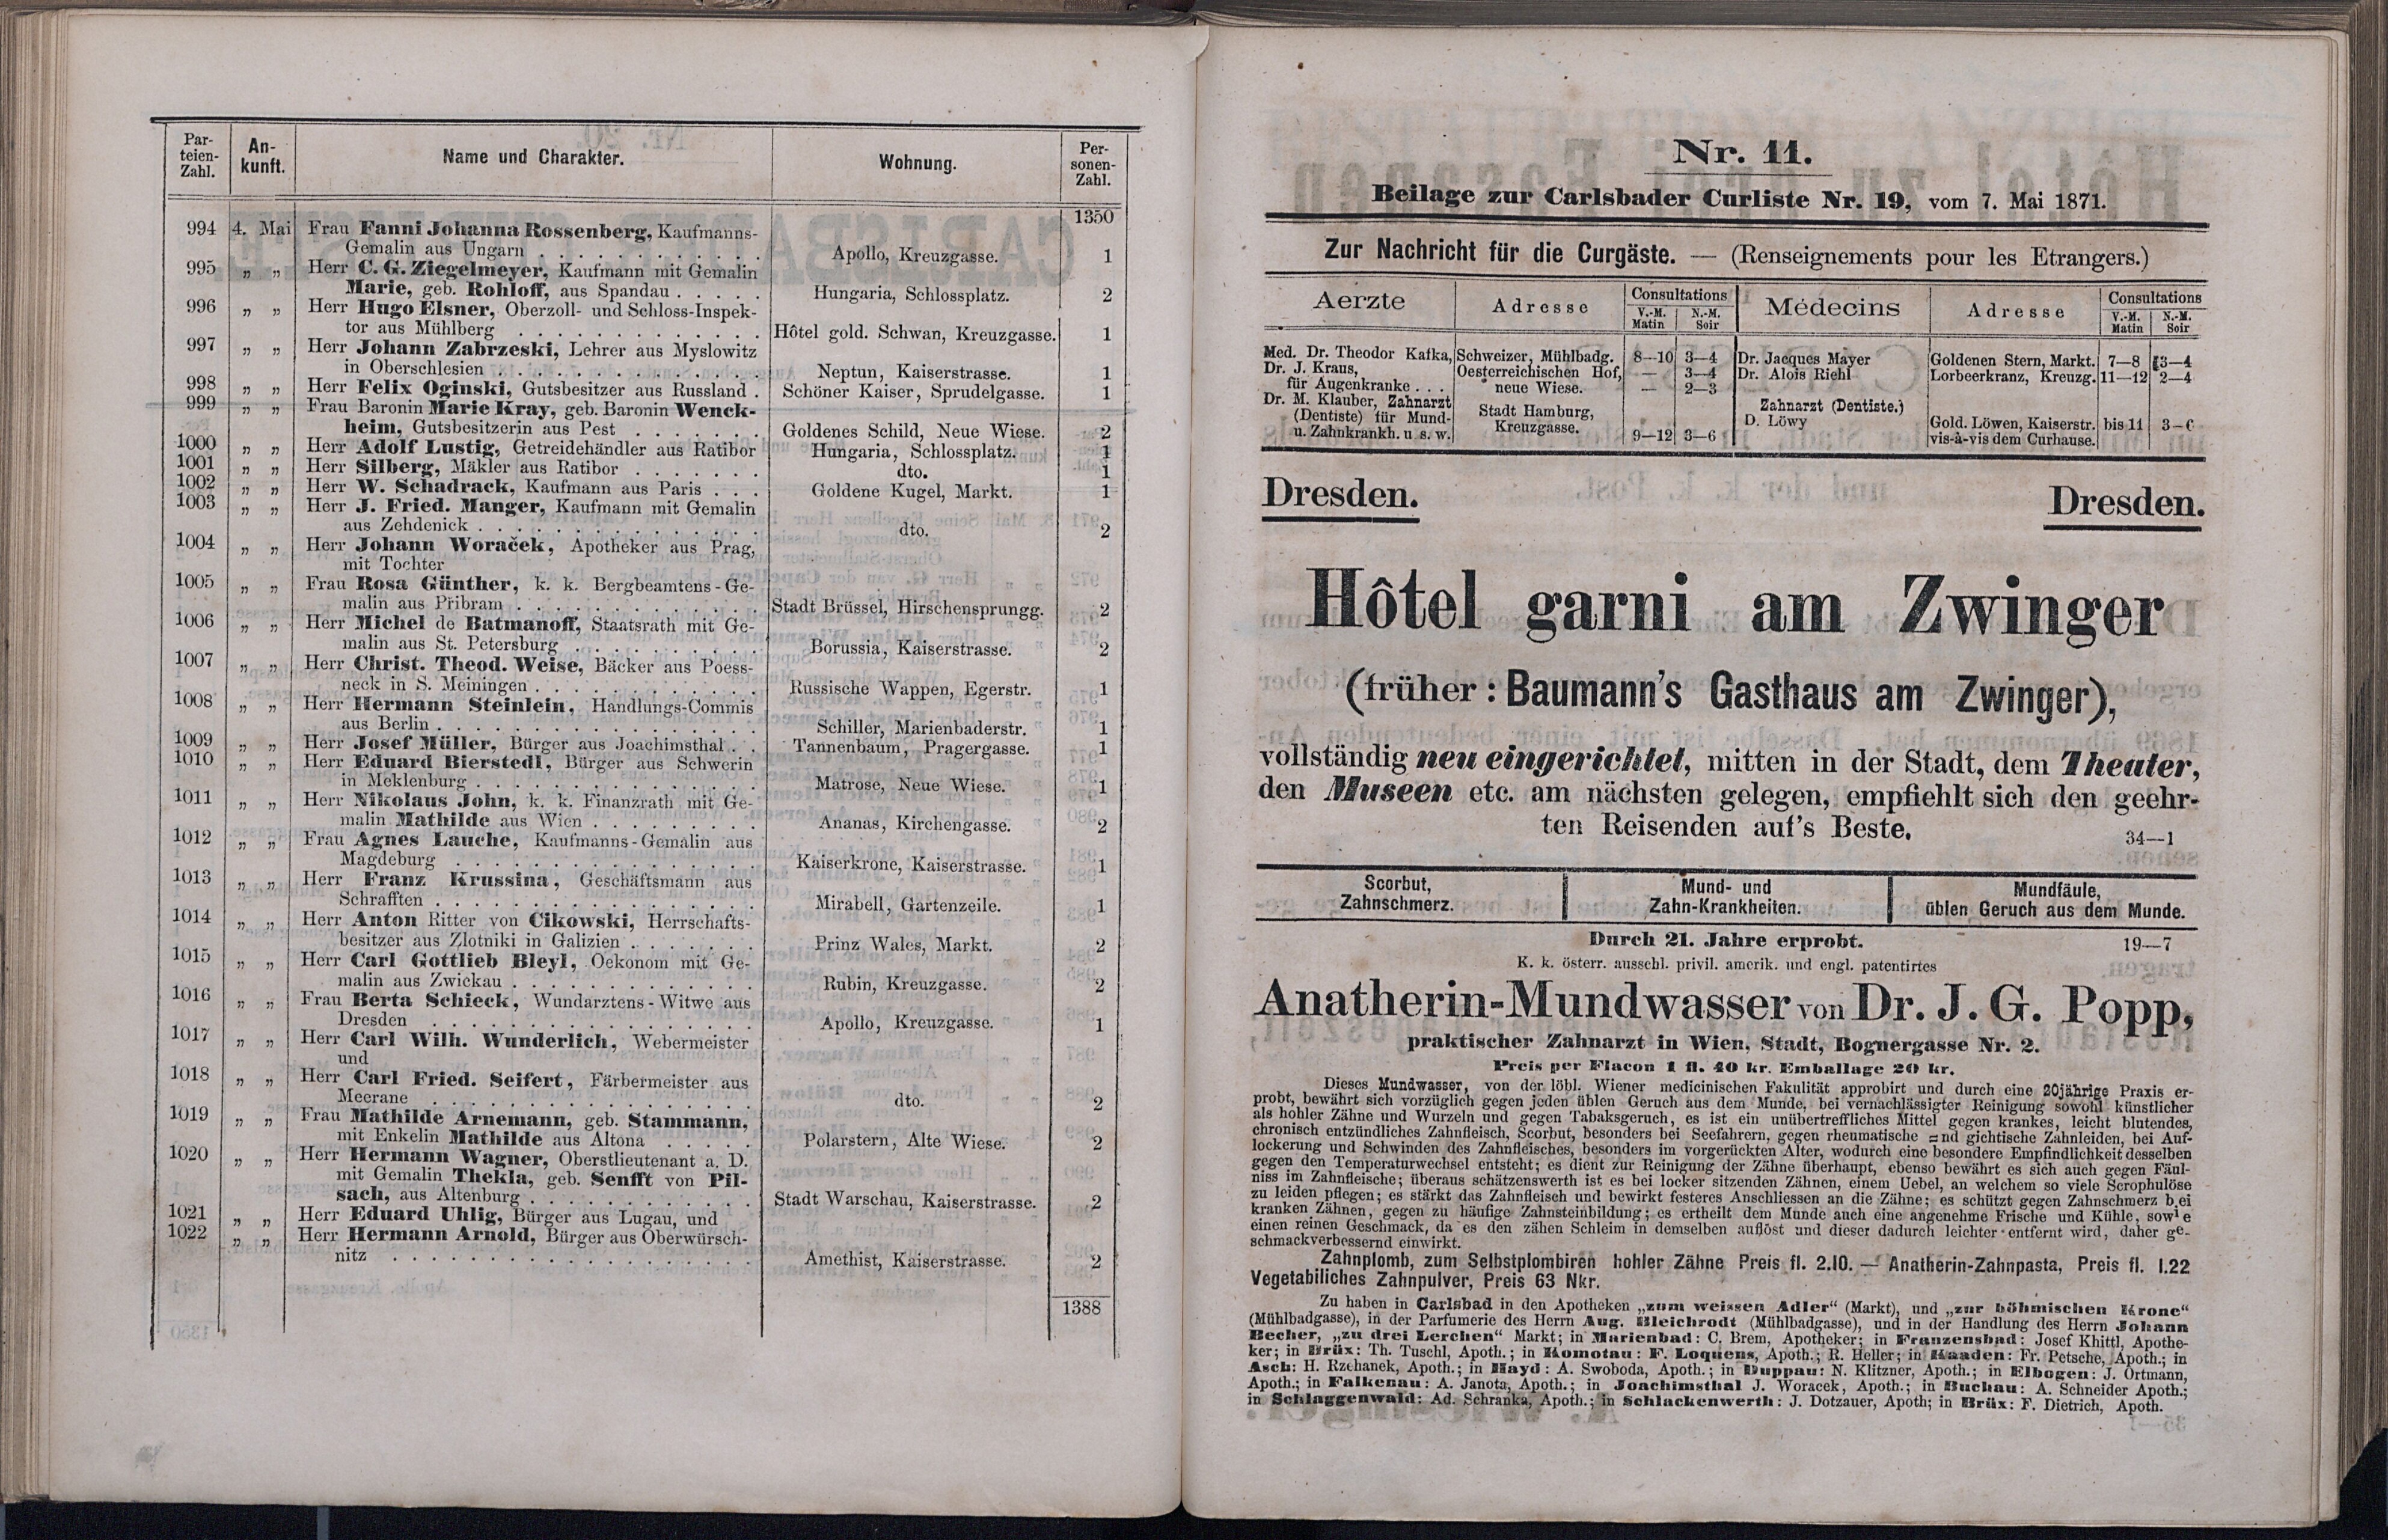 Par-
teien-
Zahl.
An-
kunft.
Name und Charakter.
Wohnung.
Per-
sonen-
Zahl.
1350
994 4. Mai Frau Fanni Johanna Rossenberg, Kaufmanns-
Gemalin aus Ungarn . . . . . . . . . . . Apollo, Kreuzgasse. 1
995 „ „ Herr C. G. Ziegelmeyer, Kaufmann mit Gemalin
Marie, geb. Rohloff, aus Spandau . . . . . Hungaria, Schlossplatz. 2
996 „ „ Herr Hugo Elsner, Oberzoll- und Schloss-Inspek-
tor aus Mühlberg . . . . . . . . . . . . Hôtel gold. Schwan, Kreuzgasse. 1
997 „ „ Herr Johann Zabrzeski, Lehrer aus Myslowitz
in Oberschlesien . . . . . . . . . . . . . Neptun, Kaiserstrasse. 1
998 „ „ Herr Felix Oginski, Gutsbesitzer aus Russland . Schöner Kaiser, Sprudelgasse. 1
999 „ „ Frau Baronin Marie Kray, geb. Baronin Wenck-
heim, Gutsbesitzerin aus Pest . . . . . . . Goldenes Schild, Neue Wiese. 2
1000 „ „ Herr Adolf Lustig, Getreidehändler aus Ratibor Hungaria, Schlossplatz. 1
1001 „ „ Herr Silberg, Mäkler aus Ratibor . . . . . . . dto. 1
1002 „ „ Herr W. Schadrack, Kaufmann aus Paris . . . Goldene Kugel, Markt. 1
1003 „ „ Herr J. Fried. Manger, Kaufmann mit Gemalin
aus Zehdenick . . . . . . . . . . . . . dto. 2
1004 „ „ Herr Johann Woraček, Apotheker aus Prag,
mit Tochter
1005 „ „ Frau Rosa Günther, k. k. Bergbeamtens-Ge-
malin aus Přibram . . . . . . . . . . . . Stadt Brüssel, Hirschensprungg. 2
1006 „ „ Herr Michel de Batmanoff, Staatsrath mit Ge-
malin aus St. Petersburg . . . . . . . . . Borussia, Kaiserstrasse. 2
1007 „ „ Herr Christ. Theod. Weise, Bäcker aus Poess-
neck in S. Meiningen . . . . . . . . . . . Russische Wappen, Egerstr. 1
1008 „ „ Herr Hermann Steinlein, Handlungs-Commis
aus Berlin . . . . . . . . . . . . . . . Schiller, Marienbaderstr. 1
1009 „ „ Herr Josef Müller, Bürger aus Joachimsthal . . Tannenbaum, Pragergasse. 1
1010 „ „ Herr Eduard Bierstedl, Bürger aus Schwerin
in Meklenburg . . . . . . . . . . . . . . Matrose, Neue Wiese. 1
1011 „ „ Herr Nikolaus John, k. k. Finanzrath mit Ge-
malin Mathilde aus Wien . . . . . . . . . Ananas, Kirchengasse. 2
1012 „ „ Frau Agnes Lauche, Kaufmanns-Gemalin aus
Magdeburg . . . . . . . . . . . . . . . Kaiserkrone, Kaiserstrasse. 1
1013 „ „ Herr Franz Krussina, Geschäftsmann aus
Schrafften . . . . . . . . . . . . . . . Mirabell, Gartenzeile. 1
1014 „ „ Herr Anton Ritter von Cikowski, Herrschafts-
besitzer aus Zlotniki in Galizien . . . . . . . Prinz Wales, Markt. 2
1015 „ „ Herr Carl Gottlieb Bleyl, Oekonom mit Ge-
malin aus Zwickau . . . . . . . . . . . . Rubin, Kreuzgasse. 2
1016 „ „ Frau Berta Schieck, Wundarztens-Witwe aus
Dresden . . . . . . . . . . . . . . . . Apollo, Kreuzgasse. 1
1017 „ „ Herr Carl Wilh. Wunderlich, Webermeister
und
1018 „ „ Herr Carl Fried. Seifert, Färbermeister aus
Meerane . . . . . . . . . . . . . . . . dto. 2
1019 „ „ Frau Mathilde Arnemann, geb. Stammann,
mit Enkelin Mathilde aus Altona . . . . . Polarstern, Alte Wiese. 2
1020 „ „ Herr Hermann Wagner, Oberstlieutenant a. D.
mit Gemalin Thekla, geb. Senfft von Pil-
sach, aus Altenburg . . . . . . . . . . . Stadt Warschau, Kaiserstrasse. 2
1021 „ „ Herr Eduard Uhlig, Bürger aus Lugau, und
1022 „ „ Herr Hermann Arnold, Bürger aus Oberwürsch-
nitz . . . . . . . . . . . . . . . . . . Amethist, Kaiserstrasse. 2
1388
Nr. 11.
Beilage zur Carlsbader Curliste Nr. 19, vom 7. Mai 1871.
Zur Nachricht für die Curgäste. — (Renseignements pour les Etrangers.)
Aerzte Adresse Consultations Médecins Adresse Consultations
V.-M. Matin N.-M. Soir V.-M. Matin N.-M. Soir
Med. Dr. Theodor Kafka, Schweizer, Mühlbadg. 8—10 3—4 Dr. Jacques Mayer Goldenen Stern, Markt. 7—8 3—4
Dr. J. Kraus, Oesterreichischen Hof, — 3—4 Dr. Alois Riehl Lorbeerkranz, Kreuzg. 11—12 2—4
für Augenkranke . . . neue Wiese. — 2—3
Dr. M. Klauber, Zahnarzt Stadt Hamburg, Zahnarzt (Dentiste.)
(Dentiste) für Mund- Kreuzgasse. D. Löwy Gold. Löwen, Kaiserstr. bis 11 3—6
u. Zahnkrankh. u s. w. 9—12 3—6 vis-à-vis dem Curhause.
Dresden. Dresden.
Hôtel garni am Zwinger
(früher: Baumann's Gasthaus am Zwinger),
vollständig neu eingerichtet, mitten in der Stadt, dem Theater,
den Museen etc. am nächsten gelegen, empfiehlt sich den geehr-
ten Reisenden auf's Beste. 34—1
Scorbut,
Zahnschmerz.
Mund- und
Zahn-Krankheiten.
Mundfäule,
üblen Geruch aus dem Munde.
Durch 21. Jahre erprobt. 19—7
K. k. österr. ausschl. privil. amerik. und engl. patentirtes
Anatherin-Mundwasser von Dr. J. G. Popp,
praktischer Zahnarzt in Wien, Stadt, Bognergasse Nr. 2.
Preis per Flacon 1 fl. 40 kr. Emballage 20 kr.
Dieses Mundwasser, von der löbl. Wiener medicinischen Fakulität approbirt und durch eine 20jährige Praxis er-
probt, bewährt sich vorzüglich gegen jeden üblen Geruch aus dem Munde, bei vernachlässigter Reinigung sowohl künstlicher
als hohler Zähne und Wurzeln und gegen Tabaksgeruch, es ist ein unübertreffliches Mittel gegen krankes, leicht blutendes,
chronisch entzündliches Zahnfleisch, Scorbut, besonders bei Seefahrern, gegen rheumatische und gichtische Zahnleiden, bei Auf-
lockerung und Schwinden des Zahnfleisches, besonders im vorgerückten Alter, wodurch eine besondere Empfindlichkeit desselben
gegen den Temperaturwechsel entsteht; es dient zur Reinigung der Zähne überhaupt, ebenso bewährt es sich auch gegen Fäul-
niss im Zahnfleische; überaus schätzenswerth ist es bei locker sitzenden Zähnen, einem Uebel, an welchem so viele Scrophulöse
zu leiden pflegen; es stärkt das Zahnfleisch und bewirkt festeres Anschliessen an die Zähne; es schützt gegen Zahnschmerz bei
kranken Zähnen, gegen zu häufige Zahnsteinbildung; es ertheilt dem Munde auch eine angenehme Frische und Kühle, sowie
einen reinen Geschmack, da es den zähen Schleim in demselben auflöst und dieser dadurch leichter entfernt wird, daher ge-
schmackverbessernd einwirkt.
Zahnplomb, zum Selbstplombiren hohler Zähne Preis fl. 2.10. — Anatherin-Zahnpasta, Preis fl. 1.22
Vegetabiliches Zahnpulver, Preis 63 Nkr.
Zu haben in Carlsbad in den Apotheken „zum weissen Adler“ (Markt), und „zur böhmischen Krone“
(Mühlbadgasse), in der Parfumerie des Herrn Aug. Bleichrodt (Mühlbadgasse), und in der Handlung des Herrn Johann
Becher, „zu drei Lerchen“ Markt; in Marienbad: C. Brem, Apotheker; in Franzensbad: Josef Khittl, Apothe-
ker; in Brüx: Th. Tuschl, Apoth.; in Komotau: F. Loquens, Apoth.; R. Heller; in Kaaden: Fr. Petsche, Apoth.; in
Asch: H. Rzehanek, Apoth.; in Hayd: A. Swoboda, Apoth.; in Duppau: N. Klitzner, Apoth.; in Elbogen: J. Ortmann,
Apoth.; in Falkenau: A. Janota, Apoth.; in Joachimsthal J. Woracek, Apoth.; in Buchau: A. Schneider Apoth.;
in Schlaggenwald: Ad. Schranka, Apoth.; in Schlackenwerth: J. Dotzauer, Apoth; in Brüx: F. Dietrich, Apoth.